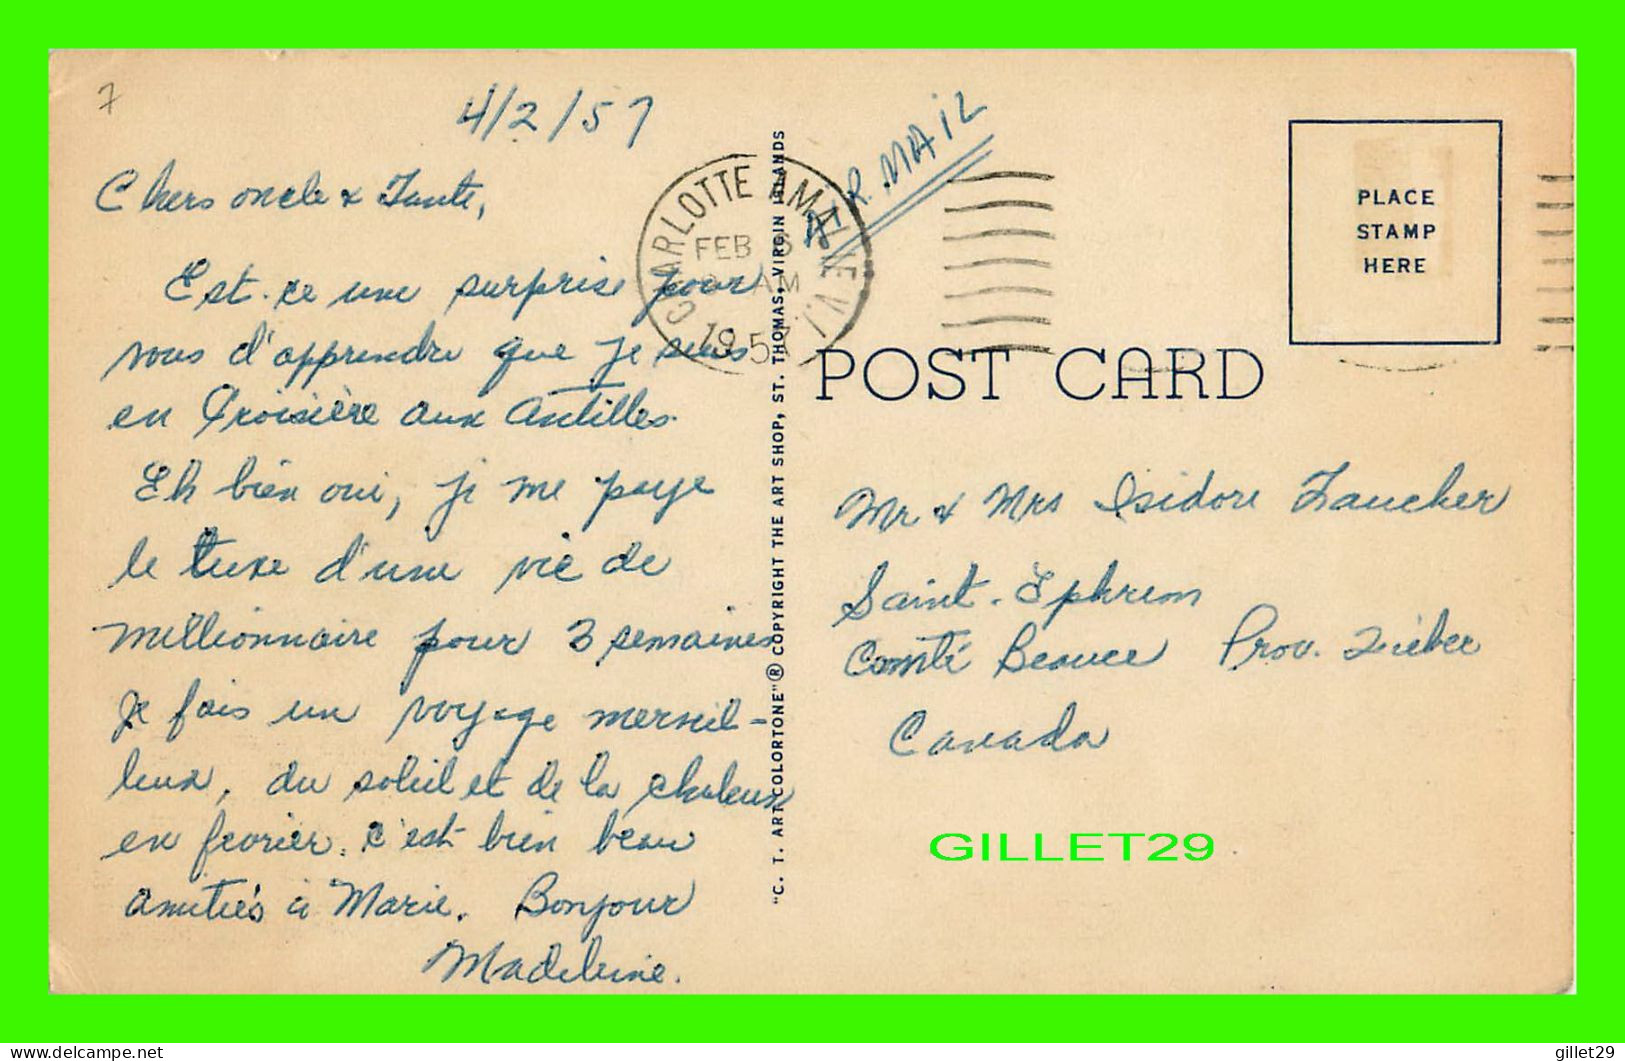 7
4/2/57
Chers oncle & Tante,
Est-ce une surprise pour
vous d'apprendre que je suis
en Croisière aux Antilles.
Eh bien oui, je me paye
le luxe d'une vie de
Millionnaire pour 3 semaines
Je fais un voyage merveil-
leux, du soleil et de la chaleur
en fevrier. c'est bien beau
amitiés à Marie. Bonjour
Madeleine.
"C. T. ART COLORTONE"® COPYRIGHT THE ART SHOP, ST. THOMAS, VIRGIN ISLANDS
CHARLOTTE AMALIE V.I.
FEB 6
AM
1957
AIR MAIL
PLACE
STAMP
HERE
POST CARD
Mr & Mrs Isidore Faucher
Saint-Ephrem
Comté Beauce Prov. Quebec
Canada
GILLET29
www.delcampe.net
gillet29